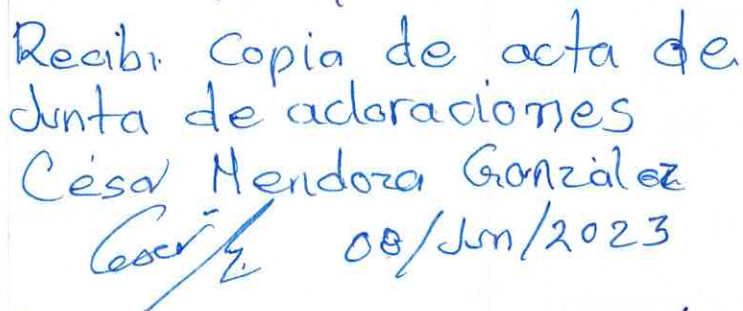 Recibi Copia de acta de
Junta de aclaraciones
César Mendoza González
08/Jun/2023